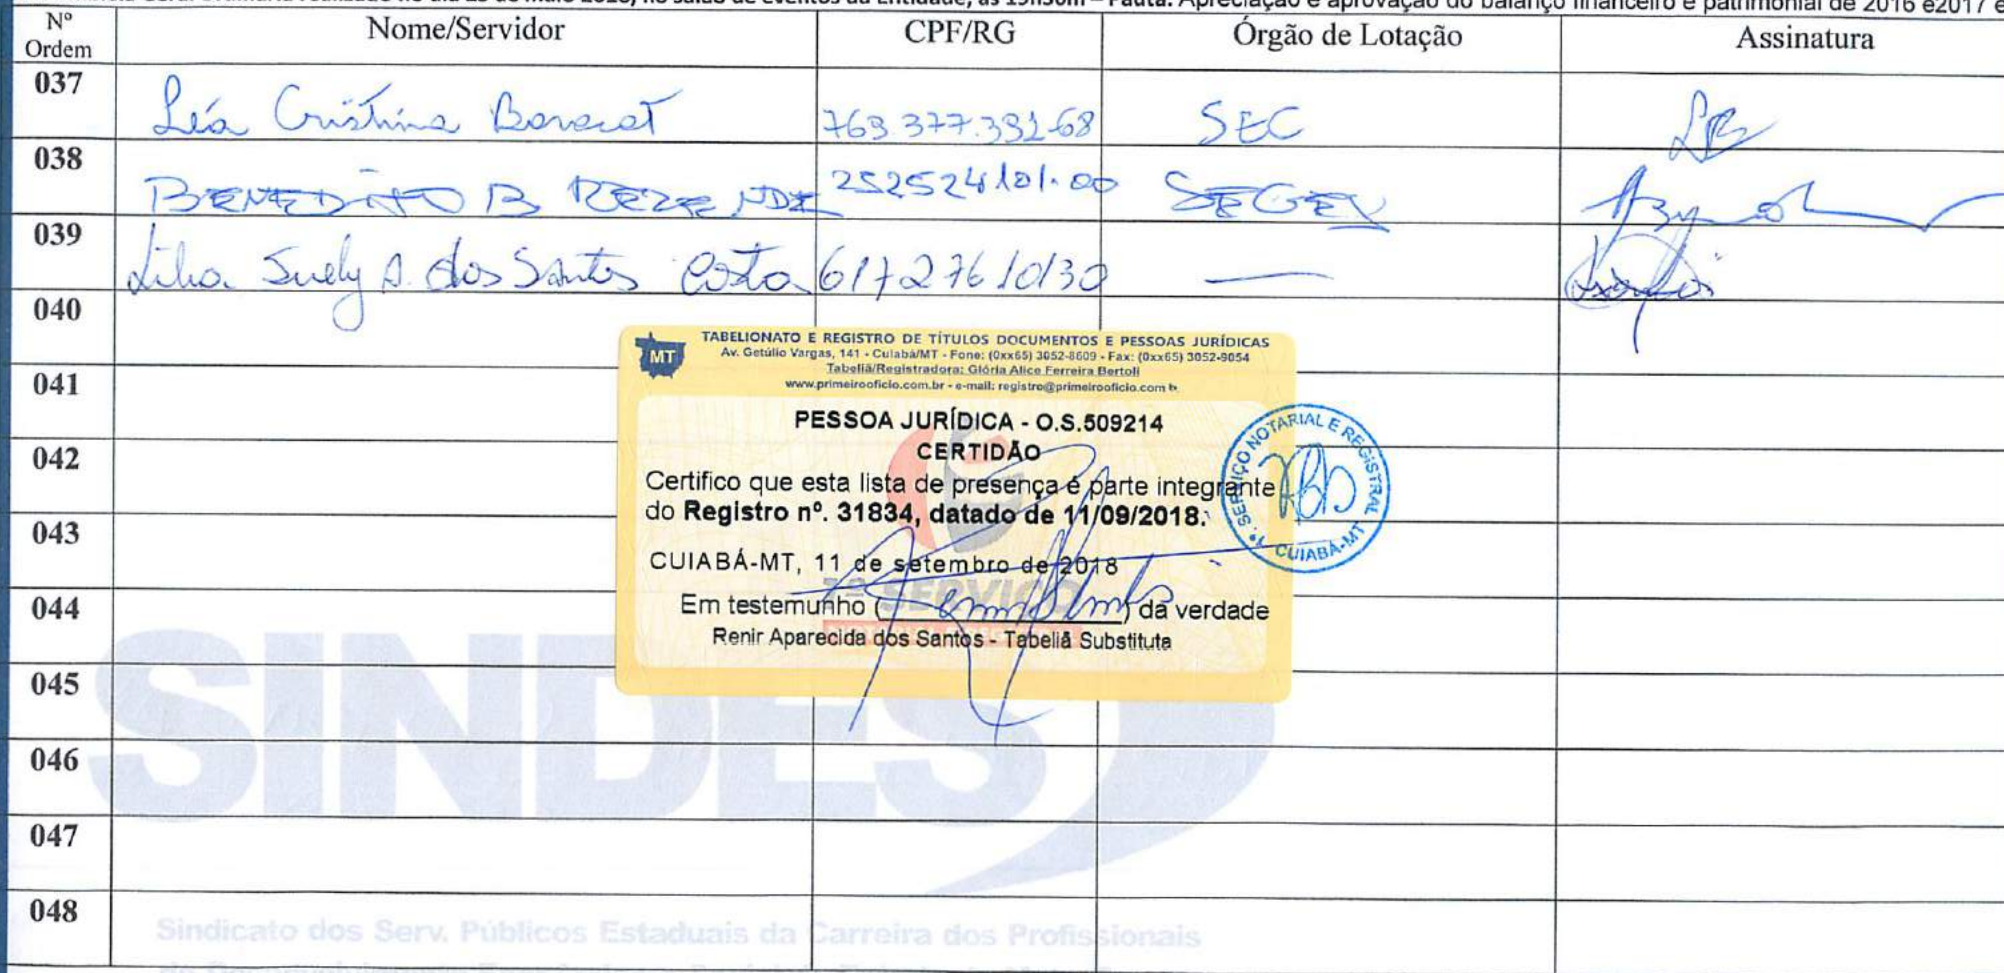 realizado no dia 23 de maio 2018, no salão de eventos da Entidade, às 19h30m – Pauta: Apreciação e aprovação do balanço financeiro e patrimonial de 2016 e2017 e
Nº Ordem Nome/Servidor CPF/RG Órgão de Lotação Assinatura
037 Léa Cristina Baracat SEC LB
038 BENEDITO B REZENDE 252524101-00 SEGES
039 Suely A. dos Santos Costa 61727610130 —
040
041
042
043
044
045
046
047
048
MT
TABELIONATO E REGISTRO DE TÍTULOS DOCUMENTOS E PESSOAS JURÍDICAS
Av. Getúlio Vargas, 141 - Cuiabá/MT - Fone: (0xx65) 3052-8609 - Fax: (0xx65) 3052-9054
Tabeliã/Registradora: Glória Alice Ferreira Bertoli
www.primeirooficio.com.br - e-mail: registro@primeirooficio.com.b
PESSOA JURÍDICA - O.S.509214
CERTIDÃO
Certifico que esta lista de presença é parte integrante
do Registro nº. 31834, datado de 11/09/2018.
CUIABÁ-MT, 11 de setembro de 2018
Em testemunho ( ) da verdade
Renir Aparecida dos Santos - Tabeliã Substituta
1º SERVIÇO
1º. SERVIÇO NOTARIAL E REGISTRAL
CUIABÁ-MT
SINDES
Sindicato dos Serv. Públicos Estaduais da Carreira dos Profissionais